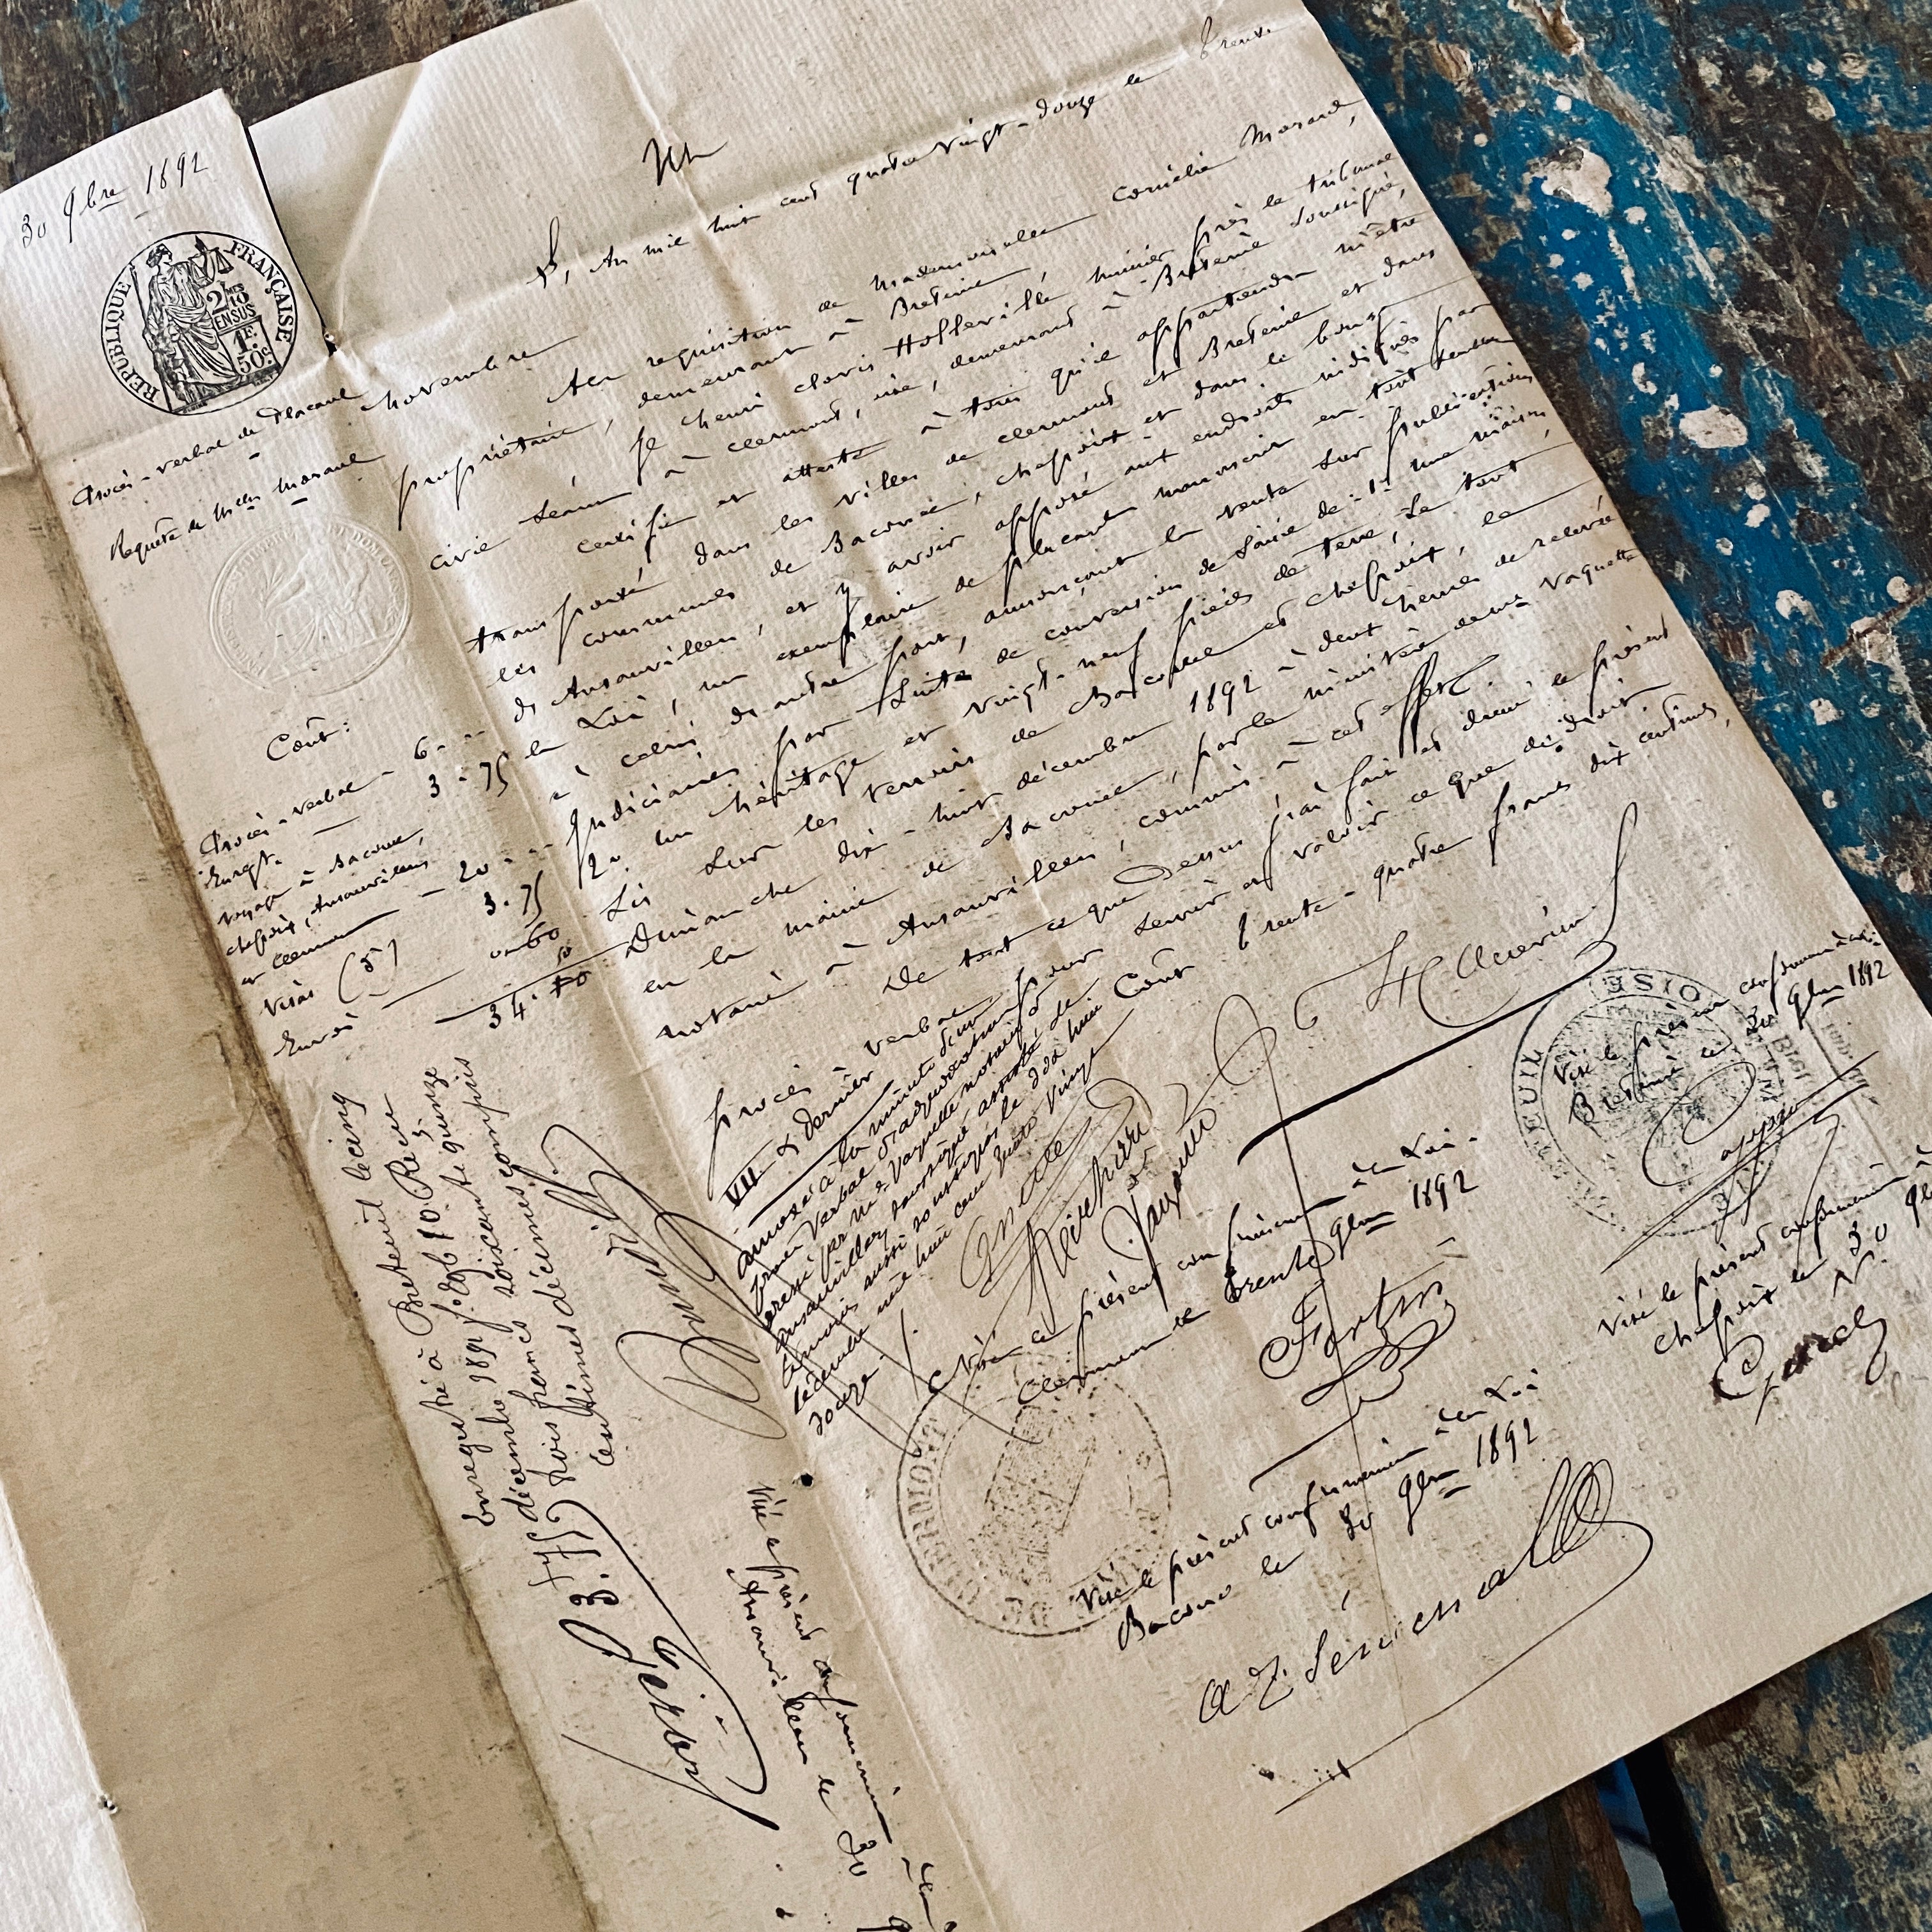 30 9bre 1892
REPUBLIQUE FRANÇAISE
2/10MES
EN SUS
1F.
50C.
Procès-verbal de Placard
Requête de Melle Morand
Coût:
Procès-verbal - 6 - "
Enregt. 3 - 75
Voyage à Bacouel,
chepoix, Ansauvillers,
et Clermont - 20 - "
Visas (5) 3 - 75
Envoi 0 - 60
34. 10
L'An mil huit cent quatre vingt-douze le trente
novembre
A la requisition de Mademoiselle Cornélie Morand,
propriétaire, demeurant à Breteuil,
Je Henri Clovis Hosleville, huissier près le tribunal
civil séant à Clermont, oise, demeurant à Breteuil soussigné,
certifie et atteste à tous qu'il appartiendra m'être
transporté dans les villes de Clermont et Breteuil et dans
les communes de Bacouel, chepoix et dans le bourg
d'Ansauvillers, et y avoir apposé aux endroits indiqués par
la Loi, un exemplaire de placard manuscrit en tout semblable
à celui d'autre part, annonçant la vente sur publications
Judiciaires par suite de conversion de saisie de: 1º une maison,
2º un héritage et vingt-neuf pièces de terre, Le tout
sis sur les terroirs de Bacouel et chepoix, le
Dimanche dix-huit décembre 1892 à deux heures de relevée
en la mairie de Bacouel, par le ministère de me Vaquette
notaire à Ansauvillers, commis à cet effet.
De tout ce que dessus j'ai fait et dressé le présent
procès-verbal pour servir et valoir ce que de droit.
Coût trente-quatre francs dix centimes,
VII & Dernier
annexé à la minute d'un
procès Verbal d'adjudication
dressé par Me Vaquette notaire à
Ansauvillers soussigné assisté de
témoins aussi soussignés le dix huit
décembre mil huit cent quatre vingt
douze
Vaquette
Enregistré à Breteuil le cinq
décembre 1892 fo 26 Co 10 Reçu
trois francs soixante quinze
centimes décimes compris
3.75
Visé le présent conformément à la Loi.
Clermont le trente 9bre 1892
Fortin
Visé le présent conformément à la Loi
Bacouel le 30 9bre 1892
Visé le présent conformément à la
Breteuil le 30 9bre 1892
Visé le présent conformément à
chepoix le 30 9b
Visé le présent conformément à la
Ansauvillers le 30 9